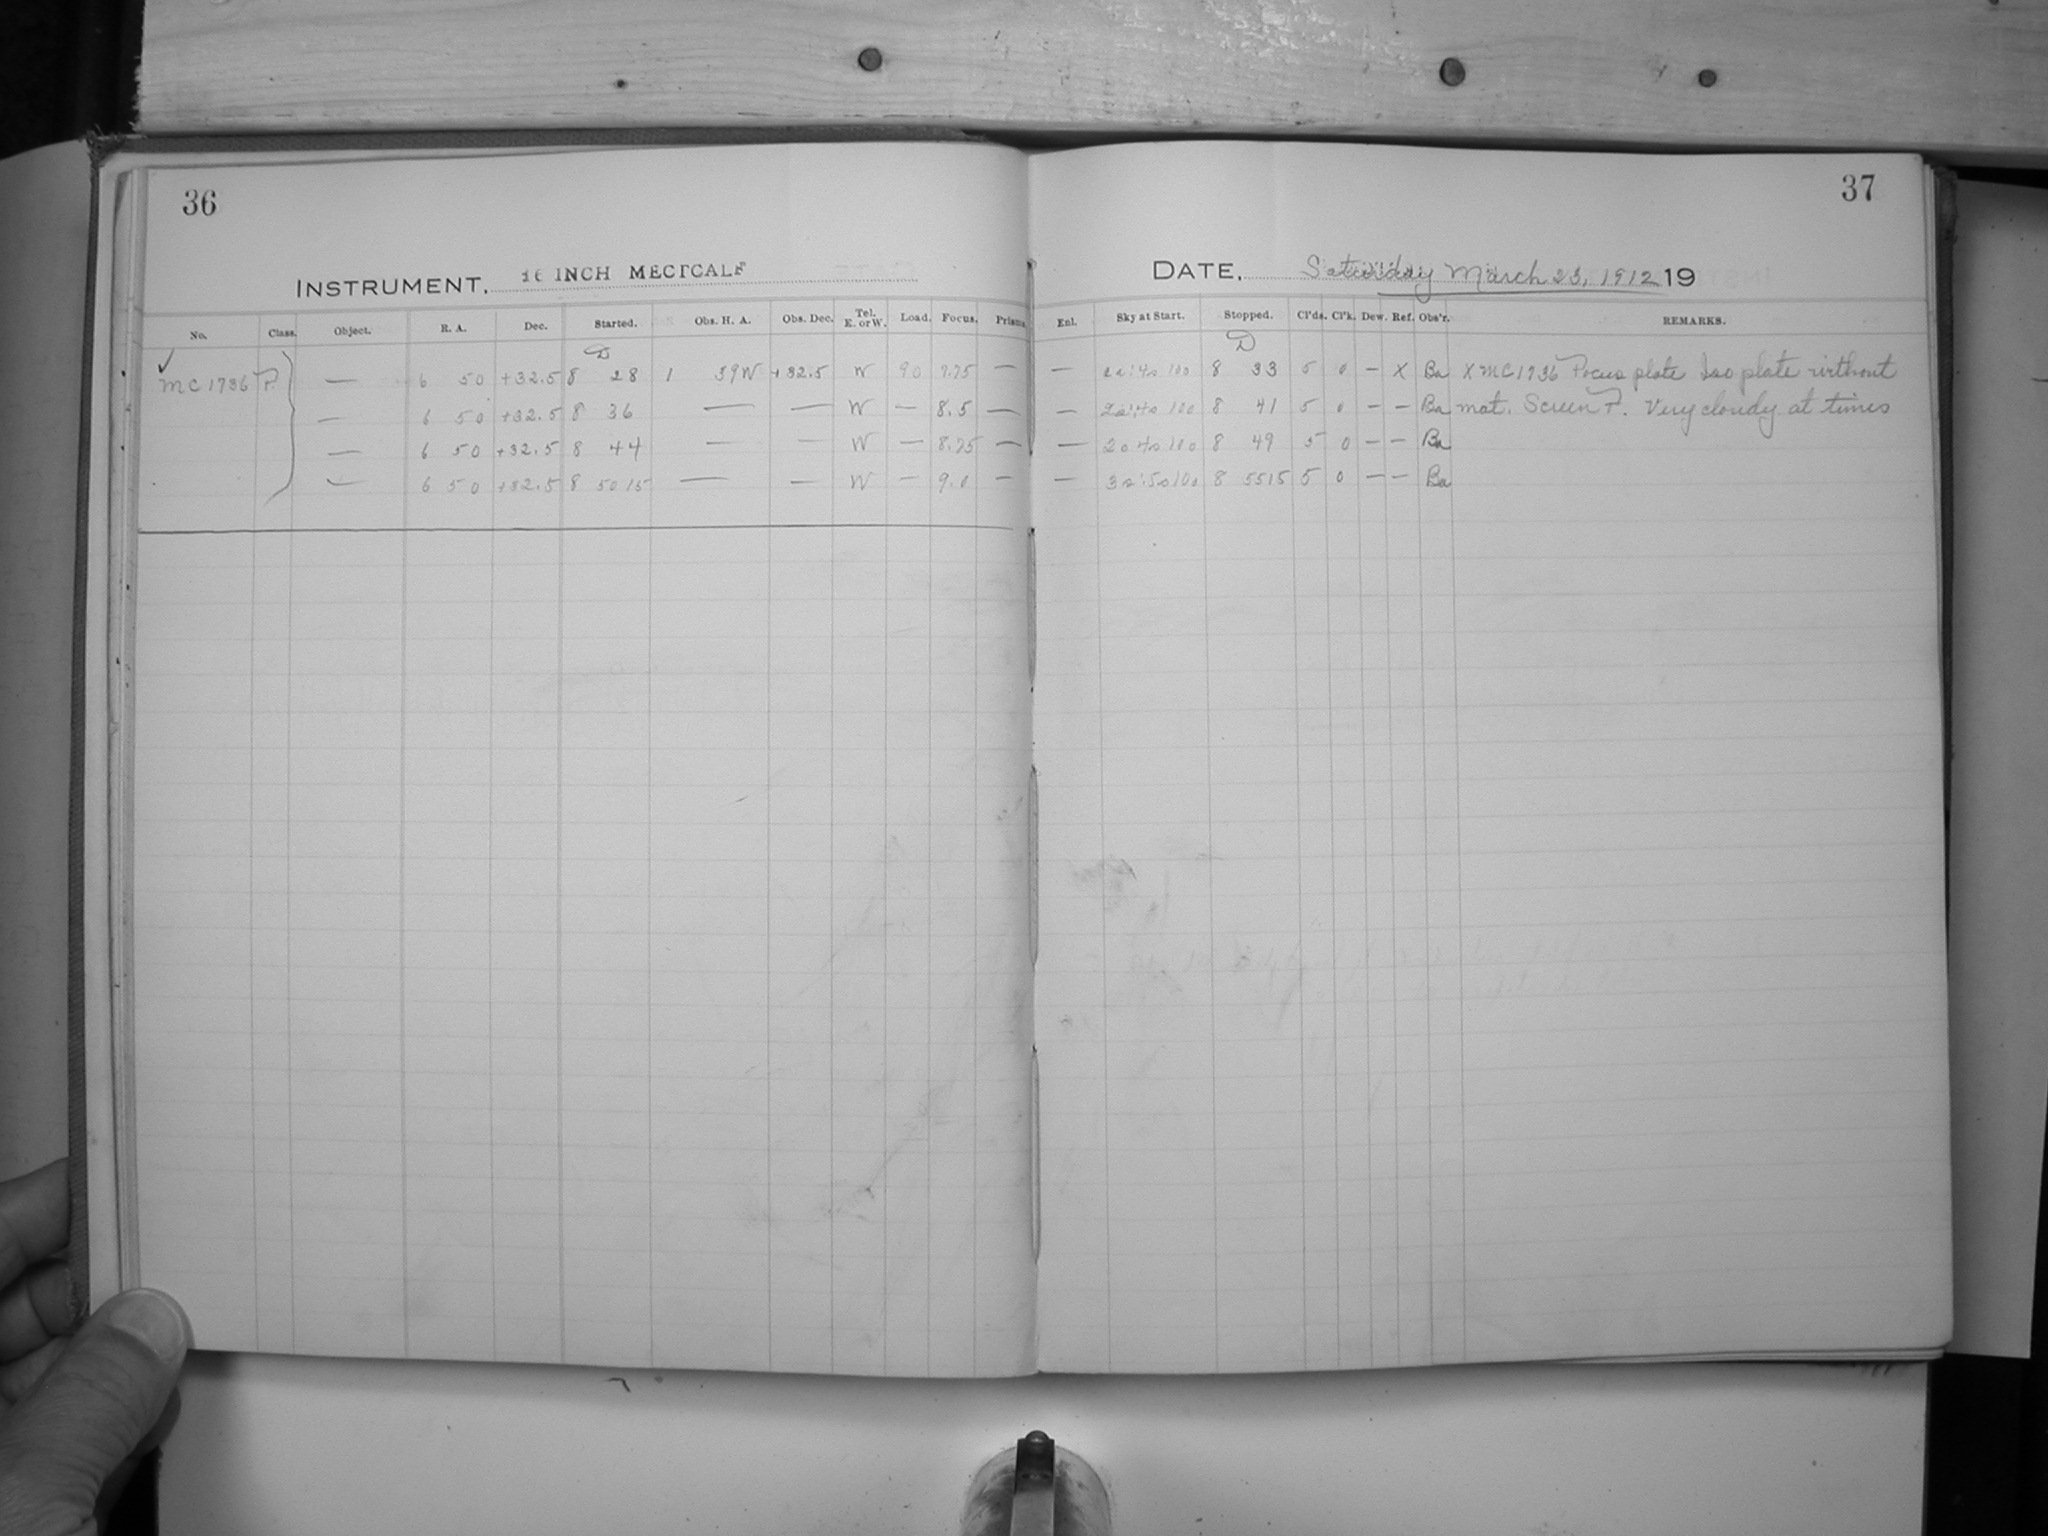 36
INSTRUMENT. 16 INCH MECTCALF
No. Class. Object. R. A. Dec. Started. Obs. H. A. Obs. Dec. Tel. E. or W. Load. Focus. Prisms
D
✓
MC 1736 P. — 6 50 +32.5 8 28 1 39W +32.5 W 90 7.75 —
— 6 50 +32.5 8 36 — — W — 8.5 —
— 6 50 +32.5 8 44 — — W — 8.75 —
— 6 50 +32.5 8 50 15 — — W — 9.0 —
37
DATE, Saturday March 23, 1912 19
Enl. Sky at Start. Stopped. Cl'ds. Cl'k. Dew. Ref. Obs'r. REMARKS.
D
— 8 33 5 0 — X Ba X MC1736 Focus plate Iso plate without
— 8 41 5 0 — — Ba mat. Screen P. Very cloudy at times
— 20 40 100 8 49 5 0 — — Ba
— 8 55 15 5 0 — — Ba